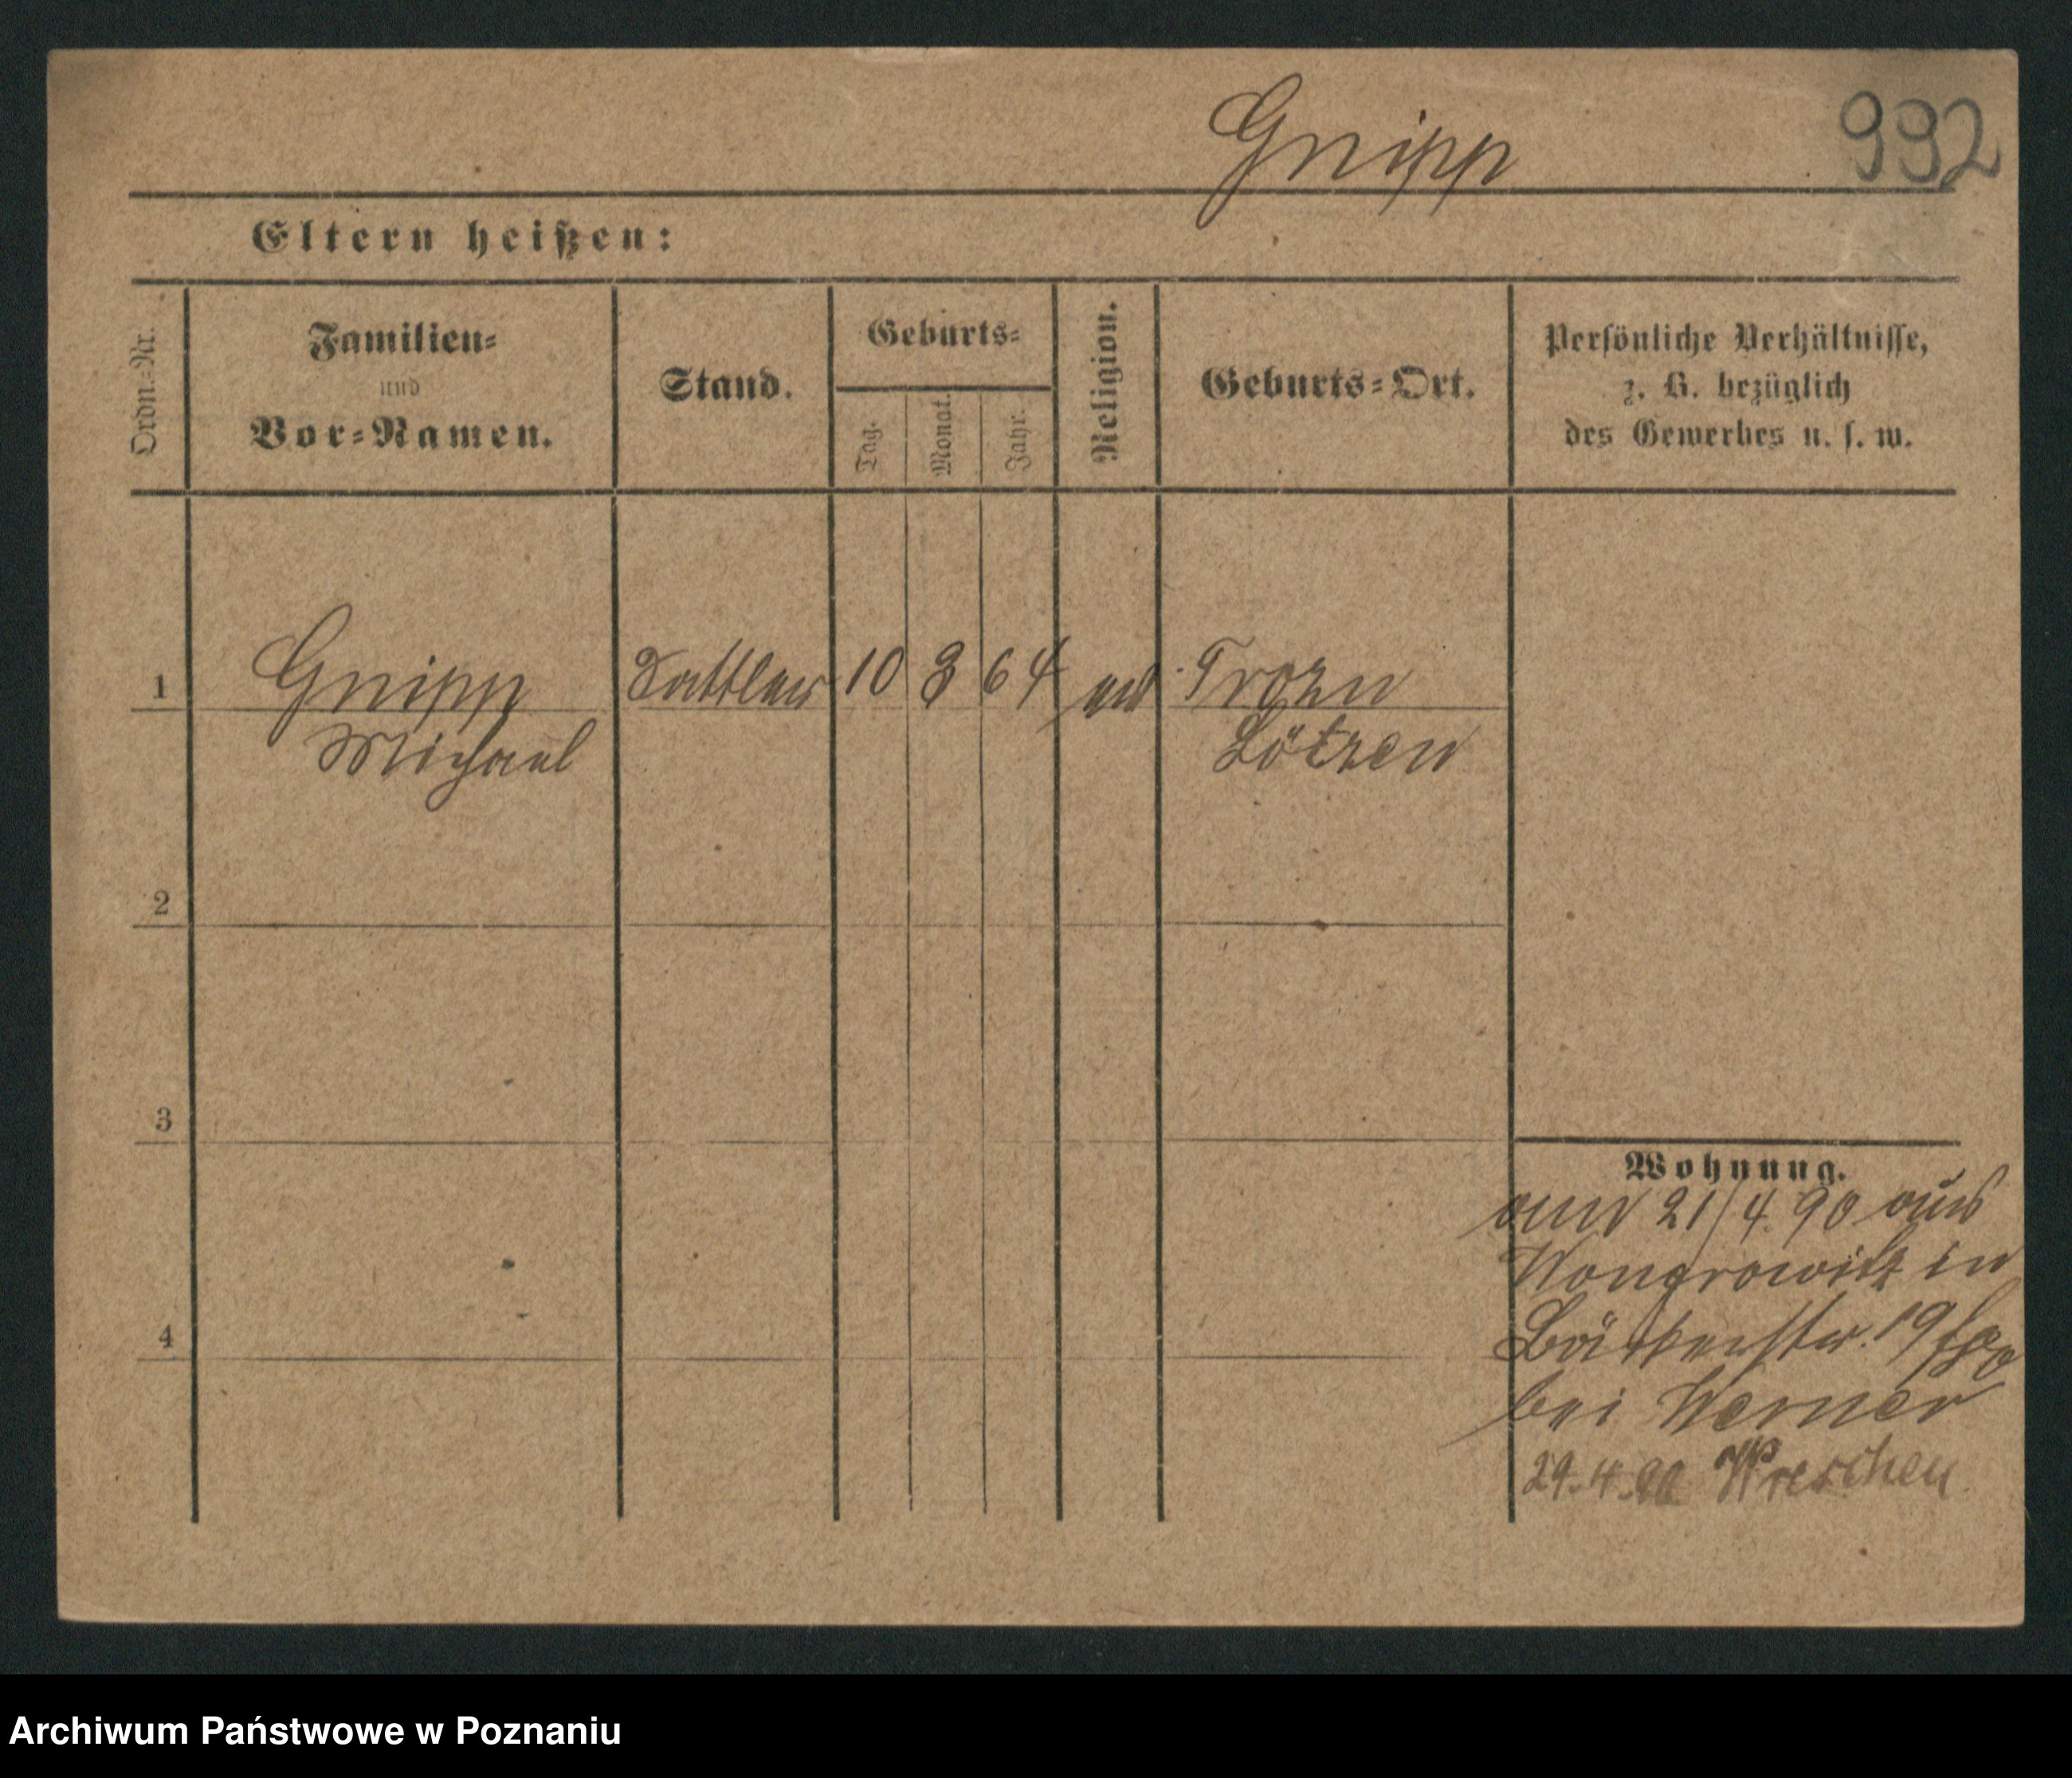 Gnipp 992
Eltern heißen:
Ordn.-Nr.
Familien-
und
Vor-Namen.
Stand.
Geburts-
Tag.
Monat.
Jahr.
Religion.
Geburts-Ort.
Persönliche Verhältnisse,
z. B. bezüglich
des Gewerbes u. s. w.
1 Gnipp Sattler 10 3 64
Michael Lötzen
2
3
4
Wohnung.
21/4 90 aus
Wongrowitz in
Bäckerstr. 19
bei Werner
29.4.90 Wreschen
Archiwum Państwowe w Poznaniu